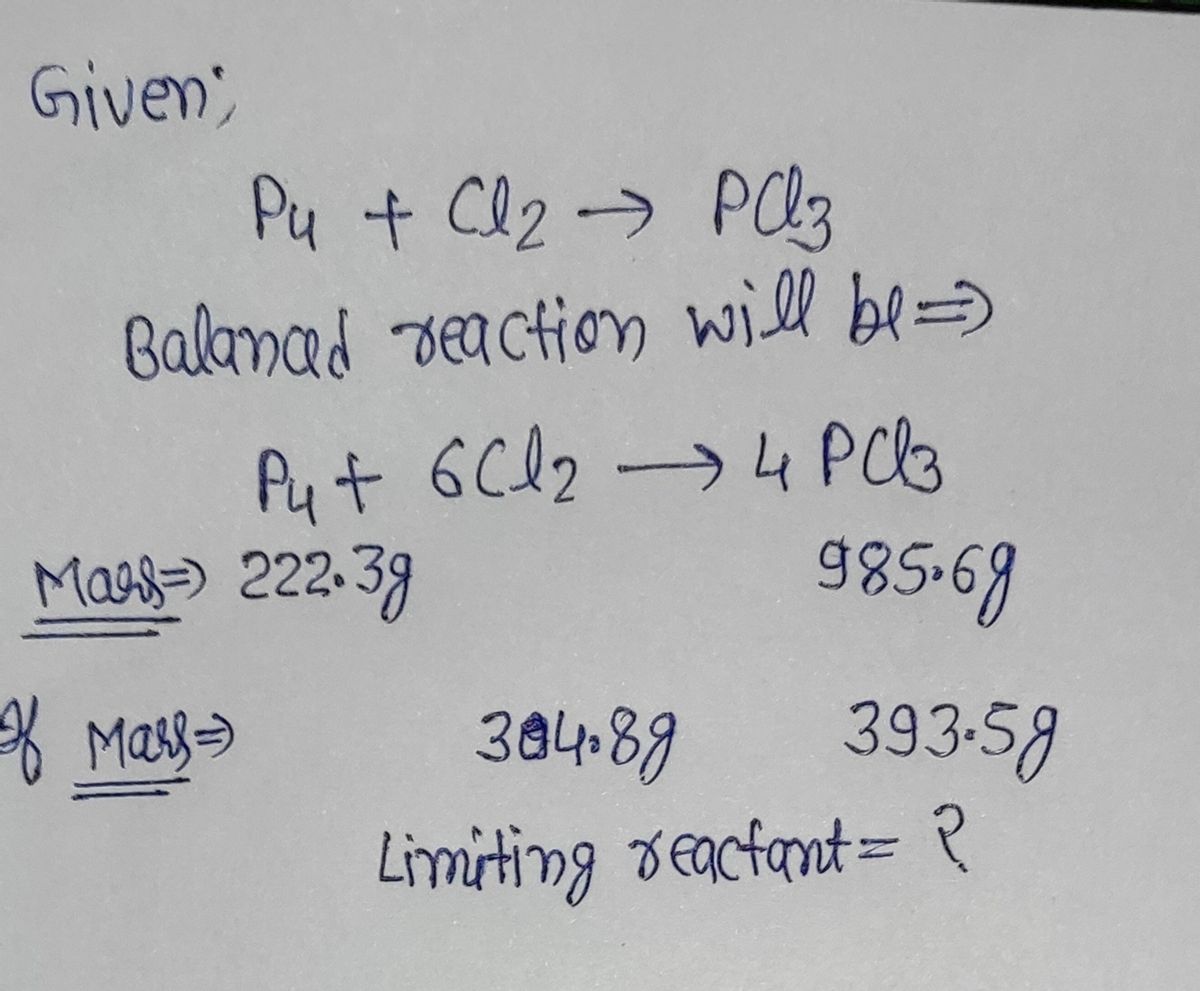 Given;
P4 + Cl2 → PCl3
Balanced reaction will be ⇒
P4 + 6Cl2 → 4 PCl3
Mass ⇒ 222.3g 985.6g
If Mass ⇒ 304.8g 393.5g
Limiting reactant = ?